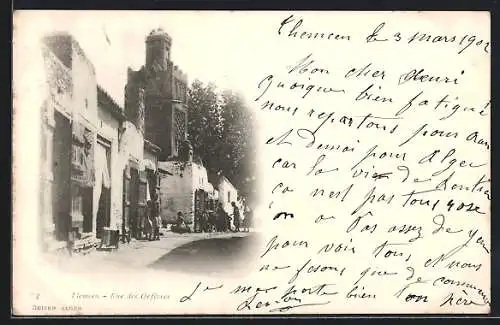 Tlemcen le 3 mars 1902
Mon cher Henri
quoique bien fatigué
nous repartons pour Oran
et demain pour Alger
car la vie de Rentier
ça n'est pas tous rose
on a Pas assez de yeux
pour voir tous, et nous
ne fesons que de commencer
Je me porte bien ton
1 Tlemcen - Rue des Orfèvres